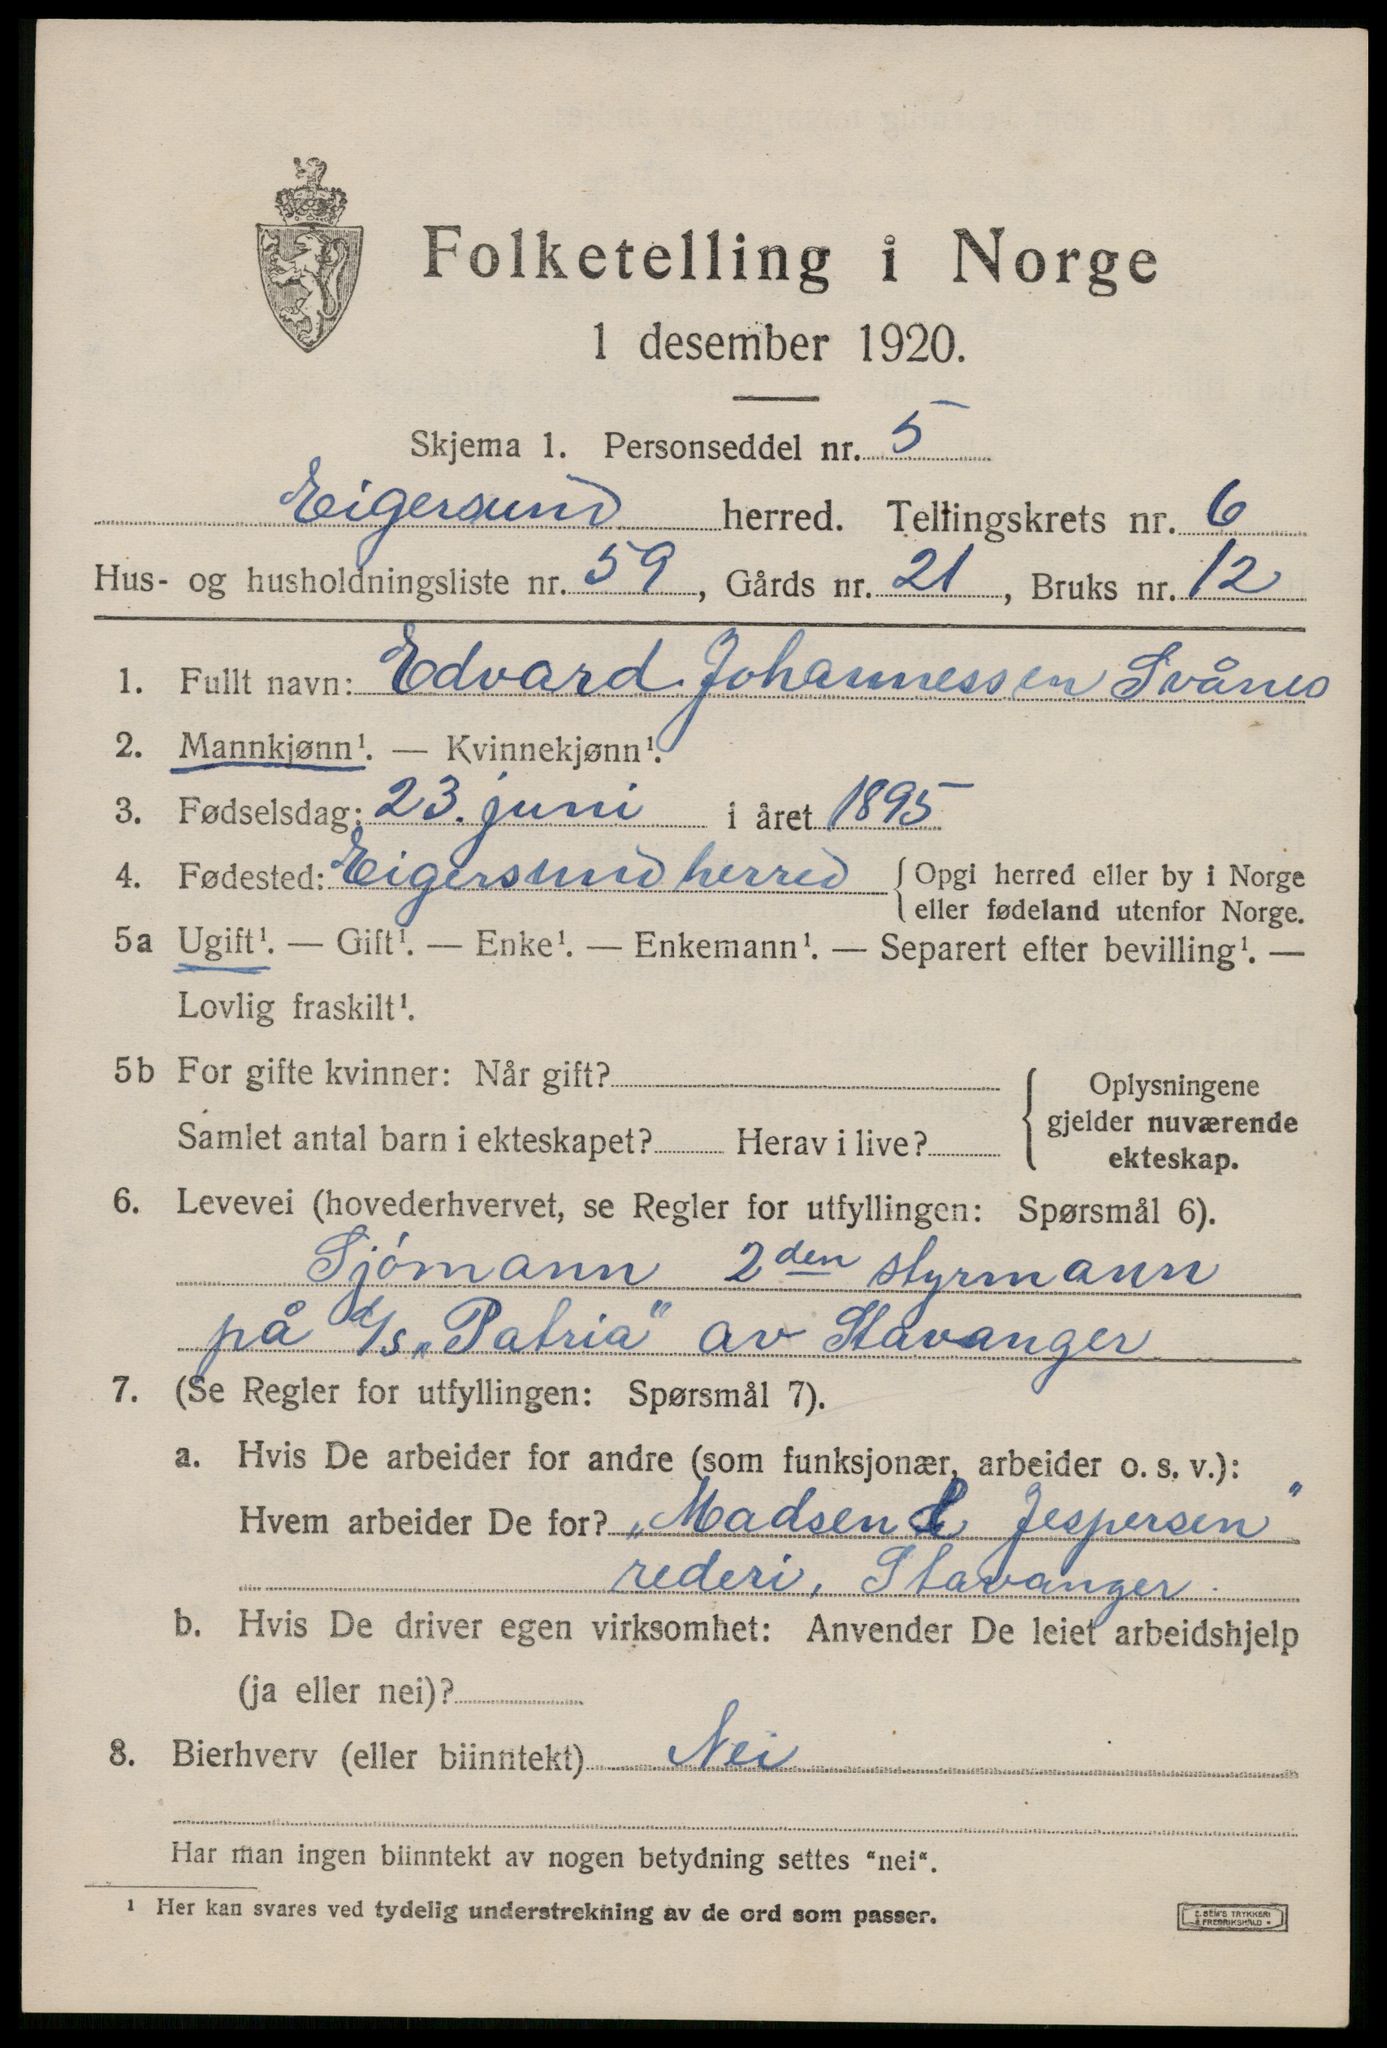 Folketelling i Norge
1 desember 1920.
Skjema 1. Personseddel nr. 5
Eigersund herred. Tellingskrets nr. 6
Hus- og husholdningsliste nr. 59, Gårds nr. 21, Bruks nr. 12
1. Fullt navn: Edvard Johannessen Svånes
2. Mannkjønn¹. — Kvinnekjønn¹.
3. Fødselsdag: 23. juni i året 1895
4. Fødested: Eigersund herred { Opgi herred eller by i Norge
eller fødeland utenfor Norge.
5a Ugift¹. — Gift¹. — Enke¹. — Enkemann¹. — Separert efter bevilling¹. —
Lovlig fraskilt¹.
5b For gifte kvinner: Når gift?
Samlet antal barn i ekteskapet? Herav i live?
Oplysningene
gjelder nuværende
ekteskap.
6. Levevei (hovederhvervet, se Regler for utfyllingen: Spørsmål 6).
Sjómann 2den styrmann
på d/s „Patria" av Stavanger
7. (Se Regler for utfyllingen: Spørsmål 7).
a. Hvis De arbeider for andre (som funksjonær, arbeider o. s. v.):
Hvem arbeider De for? „Madsen & Jespersen"
rederi, Stavanger.
b. Hvis De driver egen virksomhet: Anvender De leiet arbeidshjelp
(ja eller nei)?
8. Bierhverv (eller biinntekt) Nei
Har man ingen biinntekt av nogen betydning settes "nei".
¹ Her kan svares ved tydelig understrekning av de ord som passer.
E. SEM'S TRYKKERI
FREDRIKSHALD